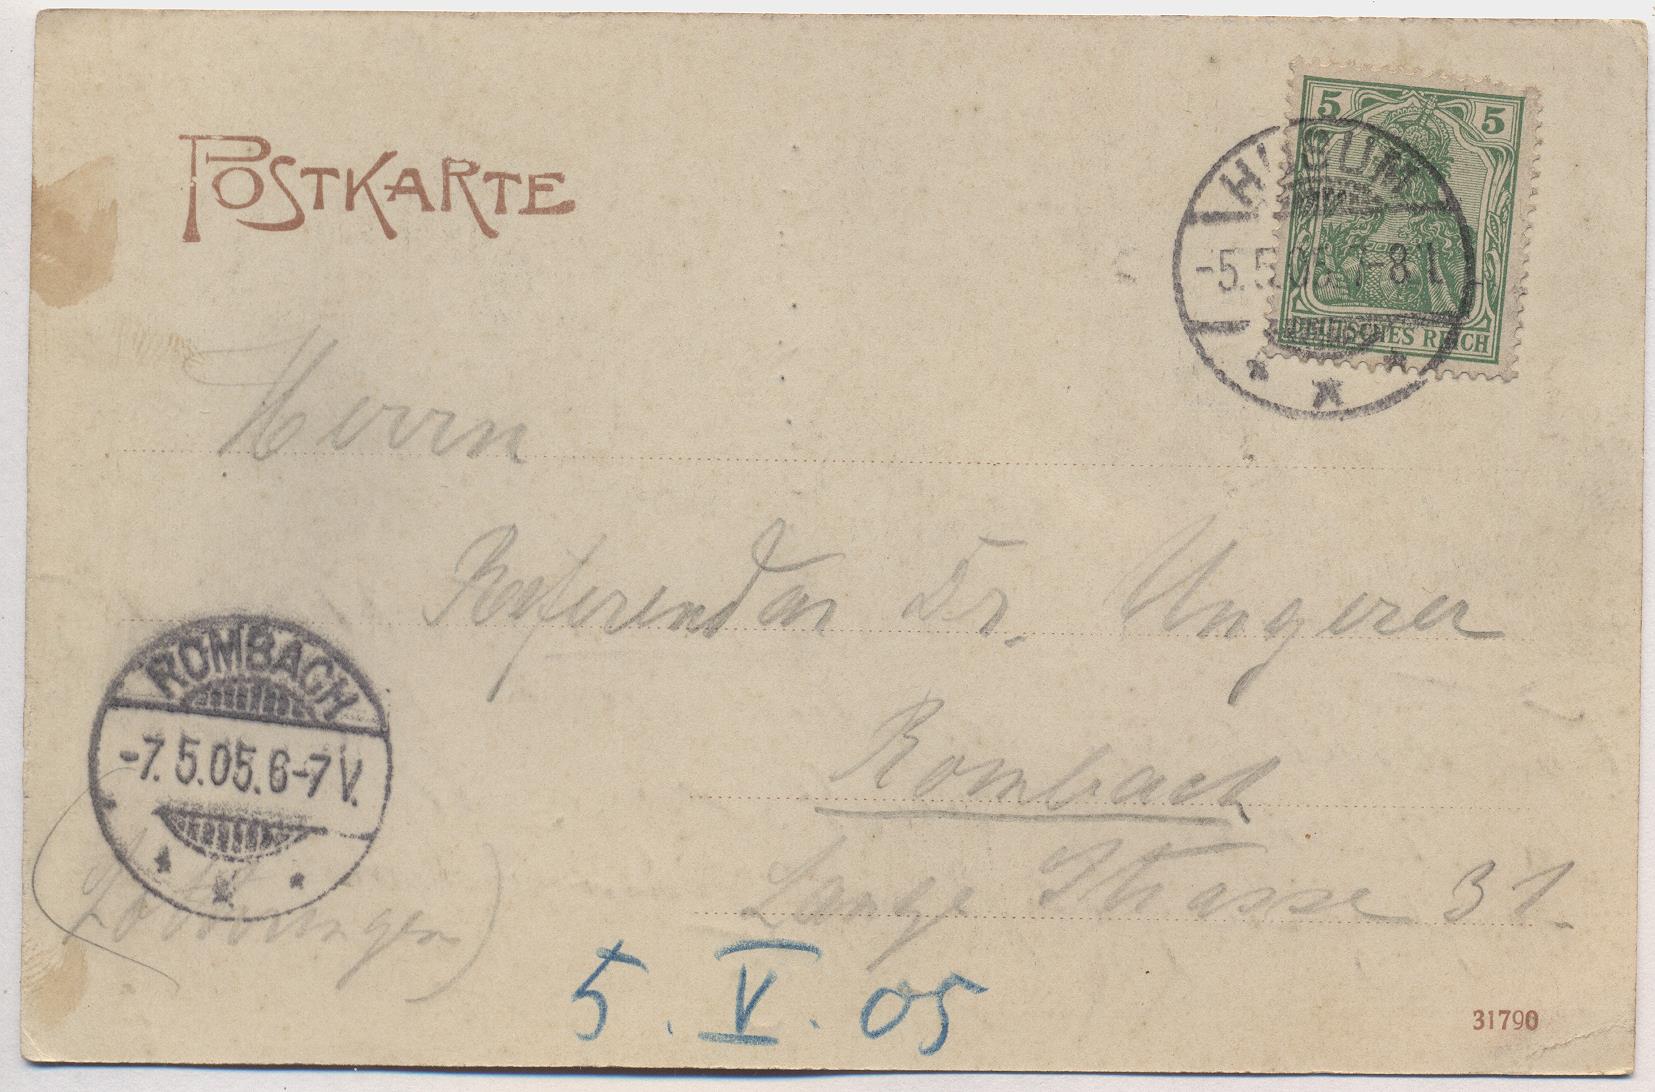 POSTKARTE
5 5
DEUTSCHES REICH
HUSUM
-5.5.05. 7-8
Herrn
Referendar Dr. Ungerer
Rombach
Lange Strasse 31.
ROMBACH
-7.5.05.6-7V.
(Lothringen)
5. V. 05
31790